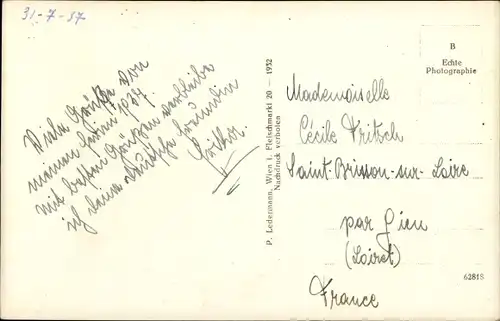 31-7-37
Viele Grüße von
meinen Ferien 1937.
Mit besten Grüßen verbleibe
ich deine deutsche Freundin
P. Ledermann, Wien I. Fleischmarkt 20 — 1932
Nachdruck verboten
B
Echte
Photographie
Mademoiselle
Cécile Fritsch
Saint-Brisson-sur-Loire
par Gien
(Loiret)
France
62818